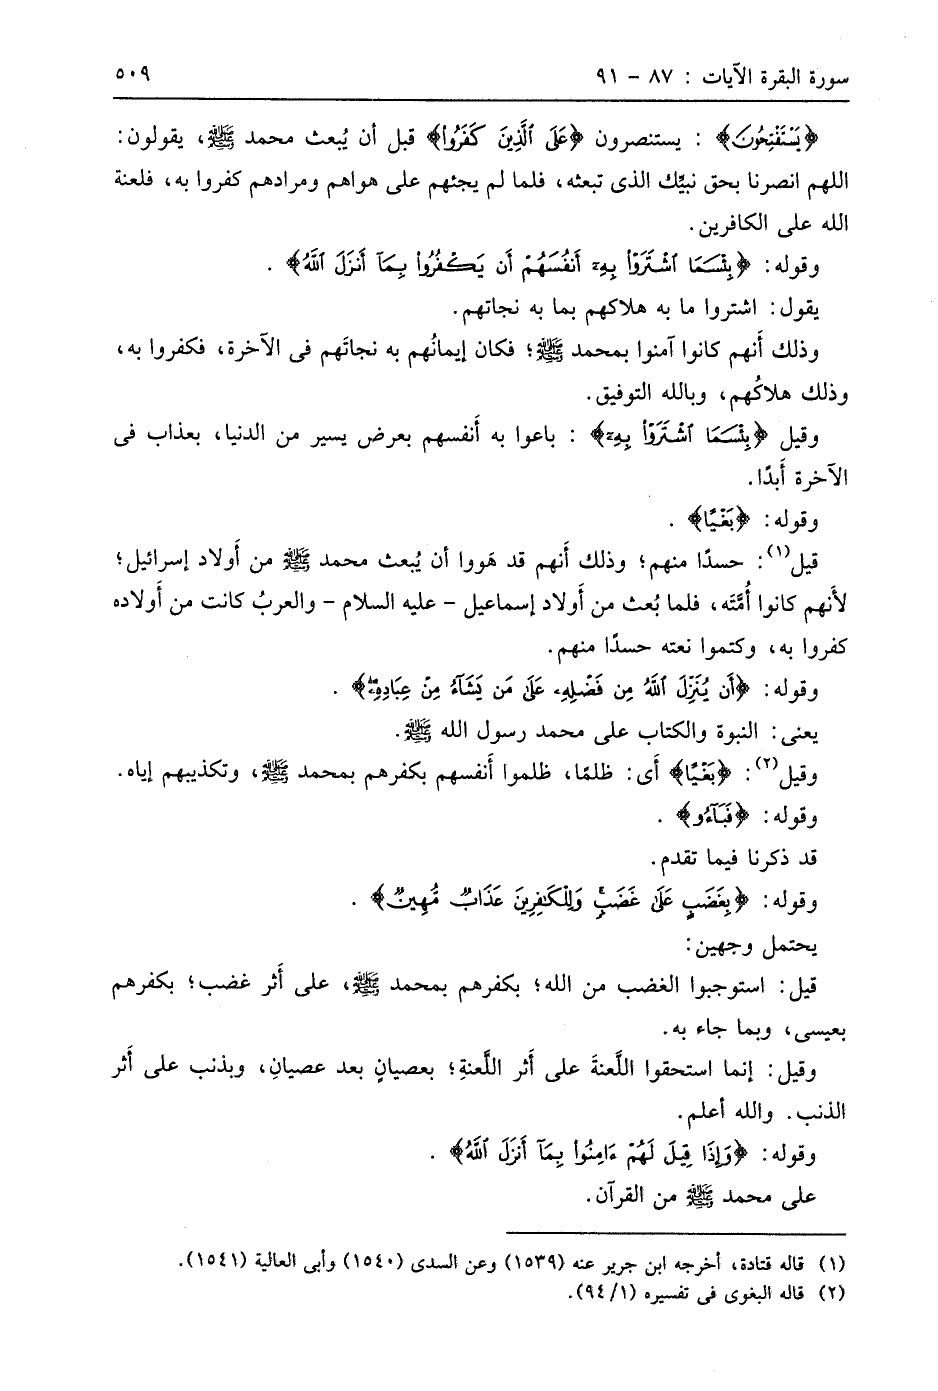 سورة البقرة الآيات : ٨٧ - ٩١ ٥٠٩
﴿يَسْتَفْتِحُونَ﴾ : يستنصرون ﴿عَلَى ٱلَّذِينَ كَفَرُوا۟﴾ قبل أن يُبعث محمد ﷺ، يقولون:
اللهم انصرنا بحق نبيِّك الذى تبعثه، فلما لم يجئهم على هواهم ومرادهم كفروا به، فلعنة
الله على الكافرين.
وقوله: ﴿بِئْسَمَا ٱشْتَرَوْا۟ بِهِۦٓ أَنفُسَهُمْ أَن يَكْفُرُوا۟ بِمَآ أَنزَلَ ٱللَّهُ﴾ .
يقول: اشتروا ما به هلاكهم بما به نجاتهم.
وذلك أَنهم كانوا آمنوا بمحمد ﷺ؛ فكان إيمانُهم به نجاتَهم فى الآخرة، فكفروا به،
وذلك هلاكُهم، وبالله التوفيق.
وقيل ﴿بِئْسَمَا ٱشْتَرَوْا۟ بِهِۦٓ﴾ : باعوا به أَنفسهم بعرض يسير من الدنيا، بعذاب فى
الآخرة أَبدًا.
وقوله: ﴿بَغْيًا﴾ .
قيل(١): حسدًا منهم؛ وذلك أَنهم قد هَووا أن يُبعث محمد ﷺ من أَولاد إسرائيل؛
لأنهم كانوا أُمَّتَه، فلما بُعث من أَولاد إسماعيل - عليه السلام - والعربُ كانت من أولاده
كفروا به، وكتموا نعته حسدًا منهم.
وقوله: ﴿أَن يُنَزِّلَ ٱللَّهُ مِن فَضْلِهِۦ عَلَىٰ مَن يَشَآءُ مِنْ عِبَادِهِۦ﴾ .
يعنى: النبوة والكتاب على محمد رسول الله ﷺ.
وقيل(٢): ﴿بَغْيًا﴾ أَى: ظلمًا، ظلموا أَنفسهم بكفرهم بمحمد ﷺ، وتكذيبهم إياه.
وقوله: ﴿فَبَآءُو﴾ .
قد ذكرنا فيما تقدم.
وقوله: ﴿بِغَضَبٍ عَلَىٰ غَضَبٍۚ وَلِلْكَـٰفِرِينَ عَذَابٌ مُّهِينٌ﴾ .
يحتمل وجهين:
قيل: استوجبوا الغضب من الله؛ بكفرهم بمحمد ﷺ، على أَثر غضب؛ بكفرهم
بعيسى، وبما جاء به.
وقيل: إنما استحقوا اللَّعنةَ على أَثر اللَّعنةِ؛ بعصيانٍ بعد عصيانٍ، وبذنب على أَثر
الذنب. والله أعلم.
وقوله: ﴿وَإِذَا قِيلَ لَهُمْ ءَامِنُوا۟ بِمَآ أَنزَلَ ٱللَّهُ﴾ .
على محمد ﷺ من القرآن.
(١) قاله قتادة، أخرجه ابن جرير عنه (١٥٣٩) وعن السدى (١٥٤٠) وأبى العالية (١٥٤١).
(٢) قاله البغوى فى تفسيره (٩٤/١).